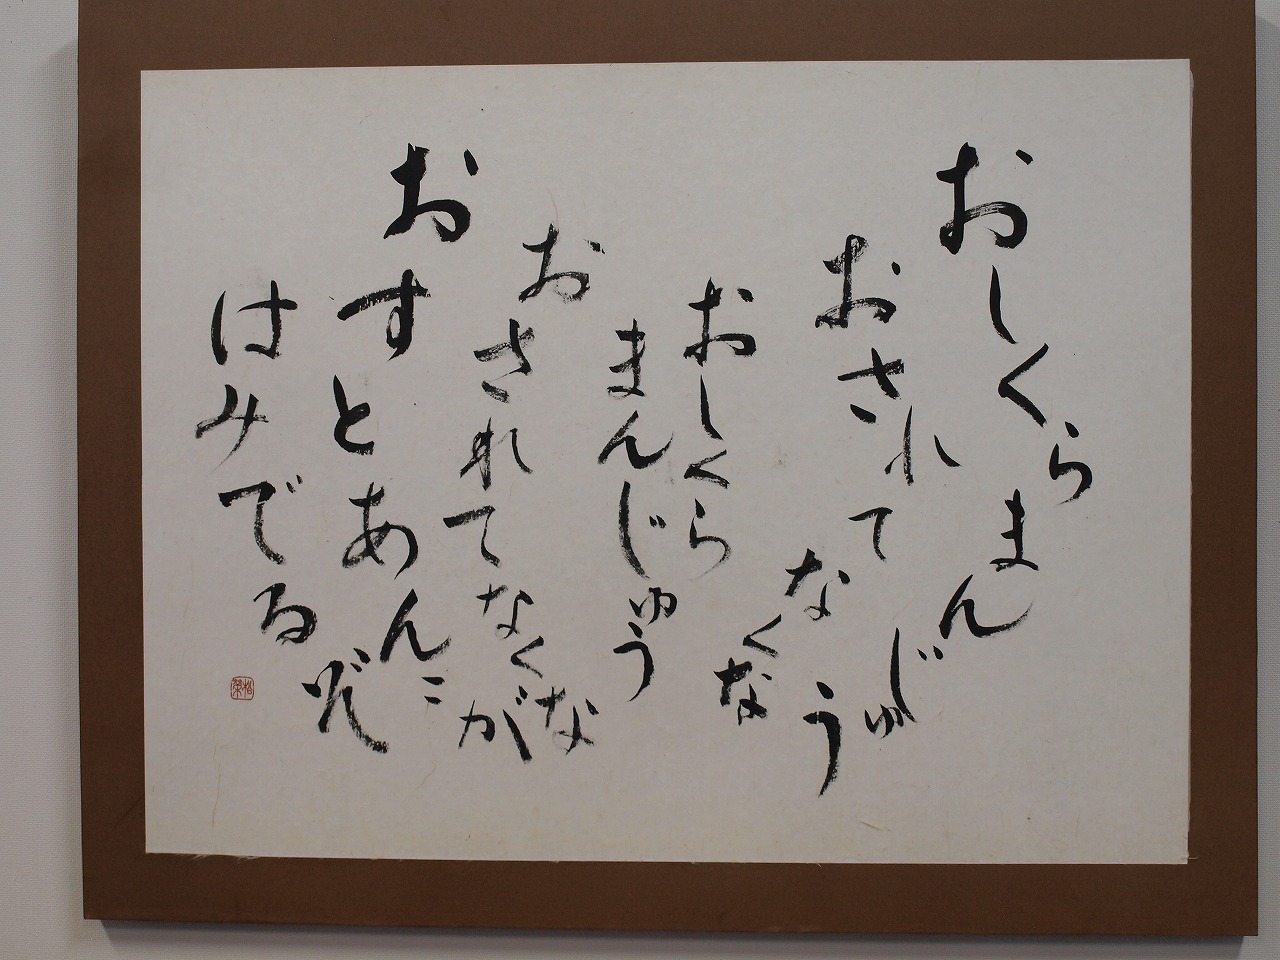 おしくらまんじゅう
おされてなくな
おしくら
まんじゅう
おされてなくな
おすとあんこが
はみでるぞ